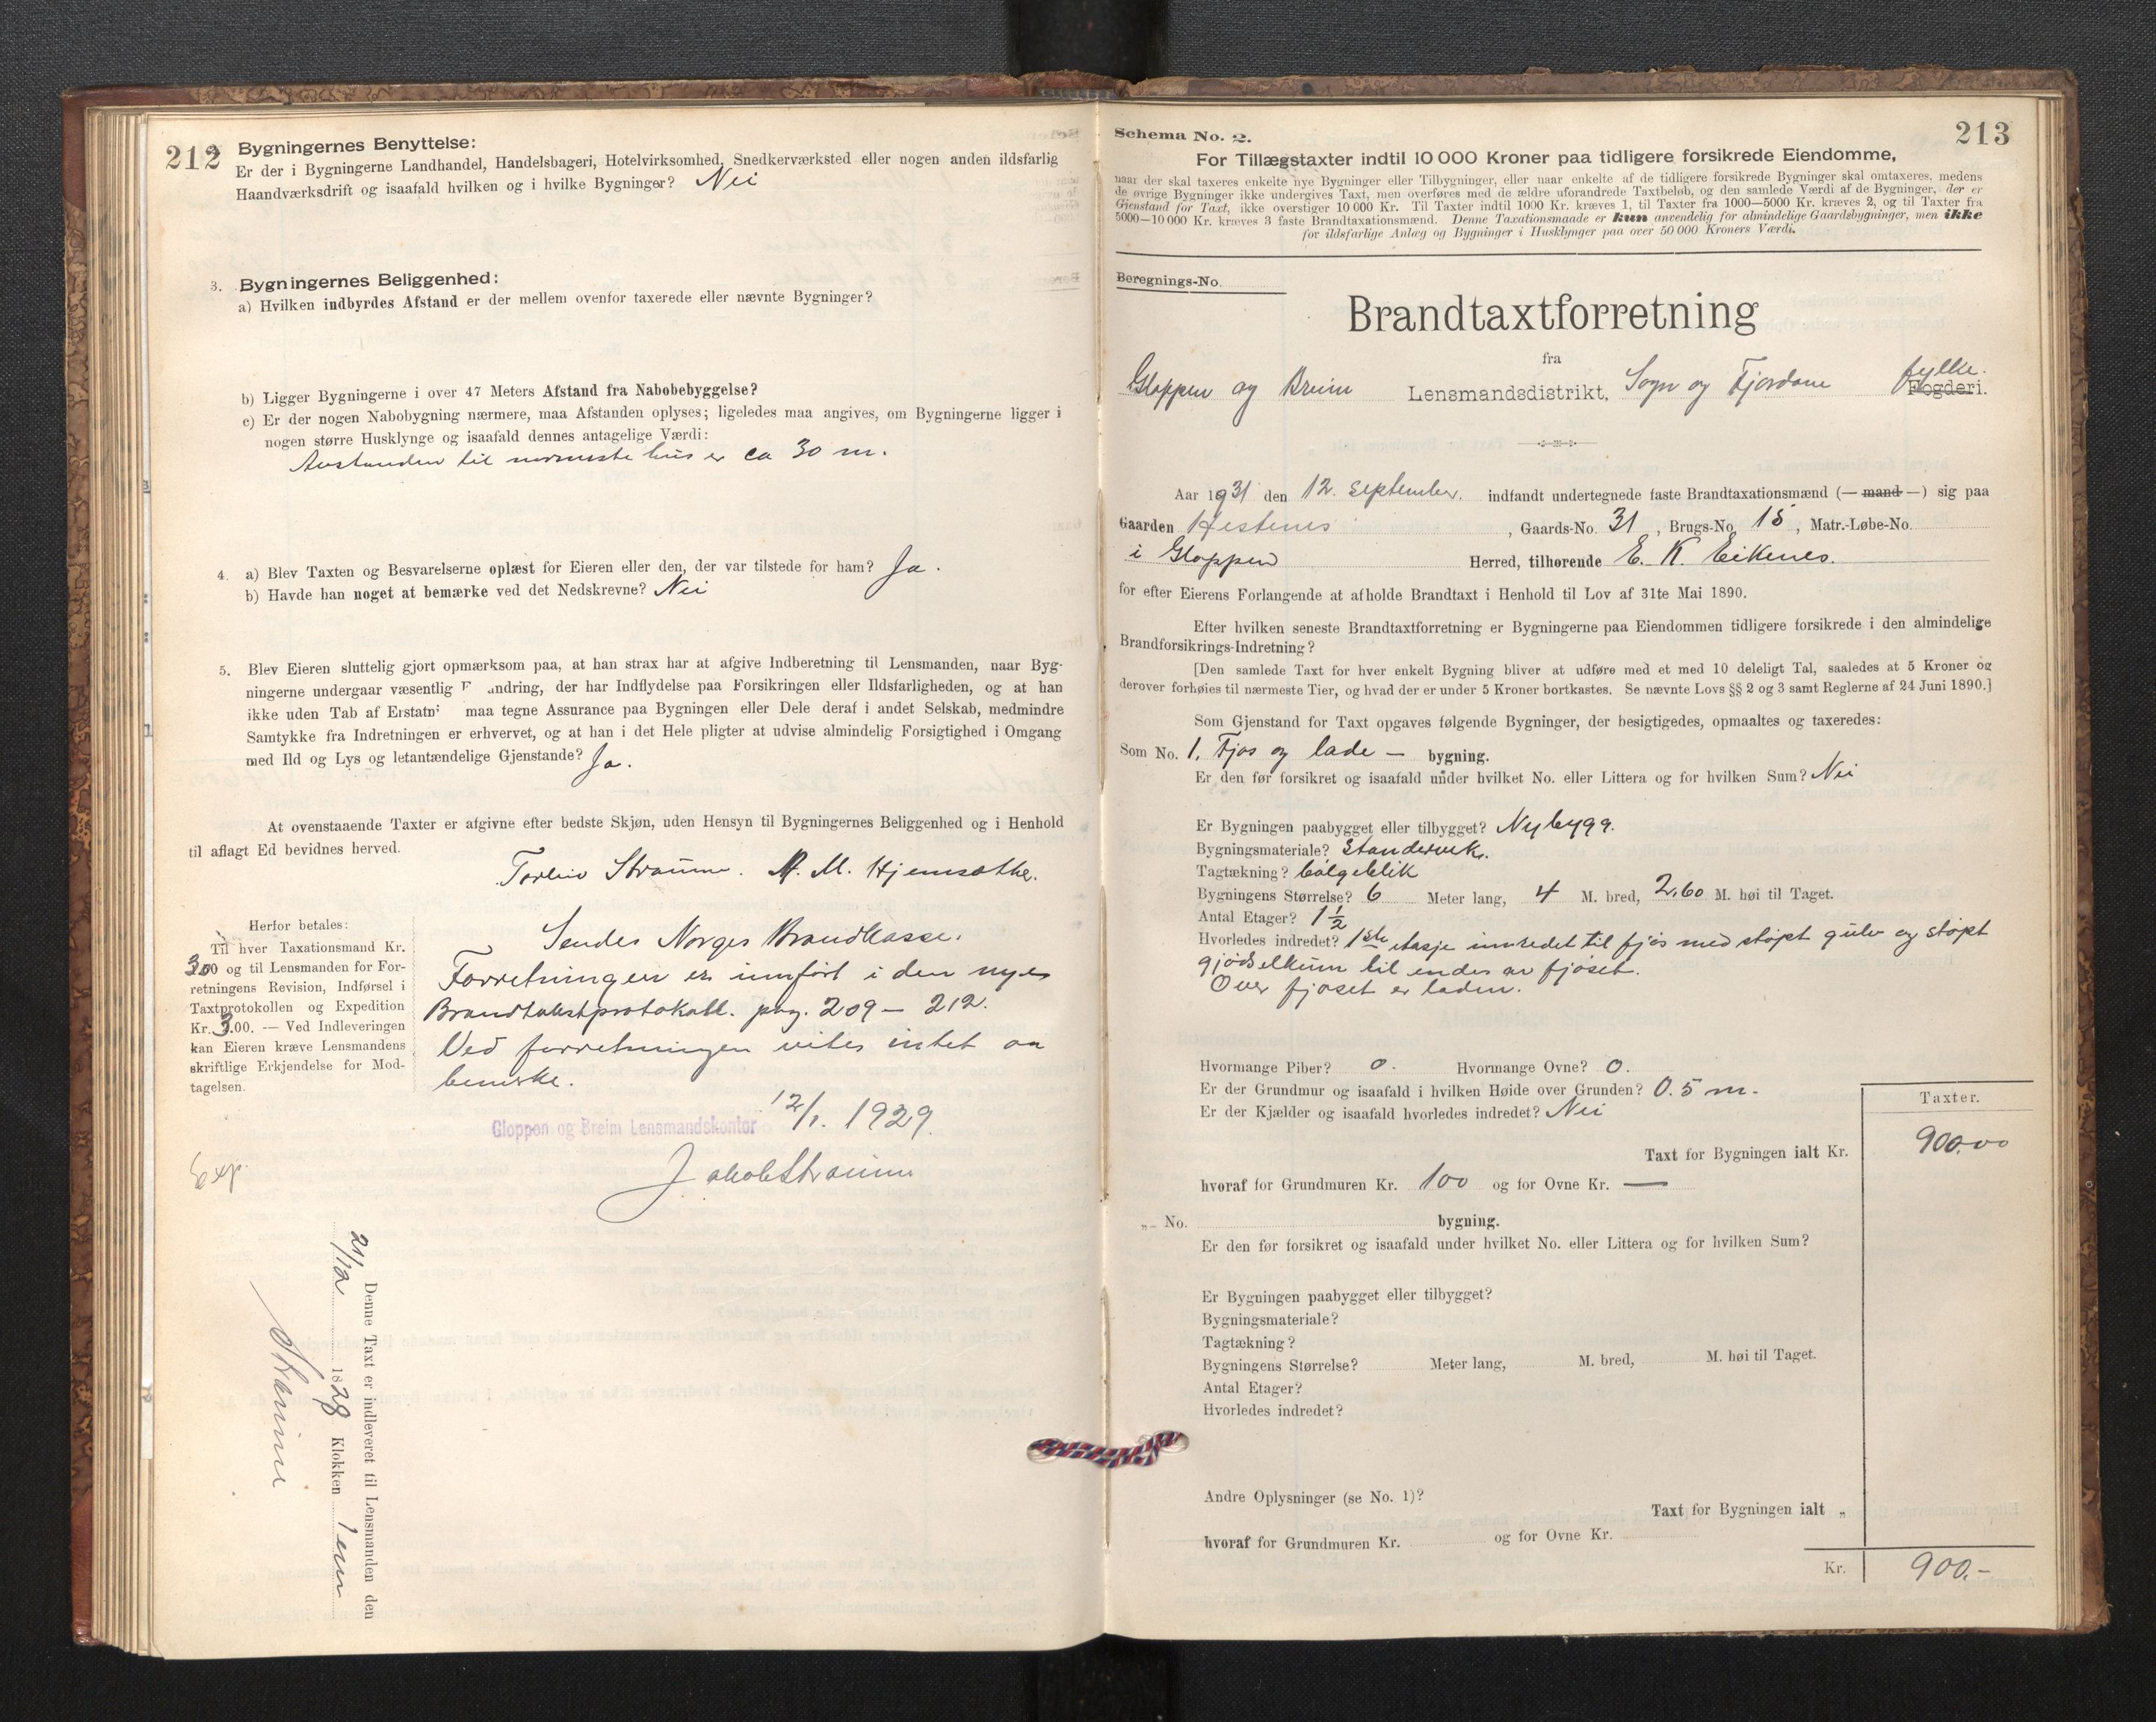 212
Bygningernes Benyttelse:
Er der i Bygningerne Landhandel, Handelsbageri, Hotelvirksomhed, Snedkerværksted eller nogen anden ildsfarlig
Haandværksdrift og isaafald hvilken og i hvilke Bygninger? Nei
3. Bygningernes Beliggenhed:
a) Hvilken indbyrdes Afstand er der mellem ovenfor taxerede eller nævnte Bygninger?
b) Ligger Bygningerne i over 47 Meters Afstand fra Nabobebyggelse?
c) Er der nogen Nabobygning nærmere, maa Afstanden oplyses; ligeledes maa angives, om Bygningerne ligger i
nogen større Husklynge og isaafald dennes antagelige Værdi:
Avstanden til nærmeste hus er ca 30 m.
4. a) Blev Taxten og Besvarelserne oplæst for Eieren eller den, der var tilstede for ham? Ja.
b) Havde han noget at bemærke ved det Nedskrevne? Nei
5. Blev Eieren sluttelig gjort opmærksom paa, at han strax har at afgive Indberetning til Lensmanden, naar Byg-
ningerne undergaar væsentlig F andring, der har Indflydelse paa Forsikringen eller Ildsfarligheden, og at han
ikke uden Tab af Erstatn maa tegne Assurance paa Bygningen eller Dele deraf i andet Selskab, medmindre
Samtykke fra Indretningen er erhvervet, og at han i det Hele pligter at udvise almindelig Forsigtighed i Omgang
med Ild og Lys og letantændelige Gjenstande? Ja.
At ovenstaaende Taxter er afgivne efter bedste Skjøn, uden Hensyn til Bygningernes Beliggenhed og i Henhold
til aflagt Ed bevidnes herved.
Torleiv Straume. M. M. Hjemsæther.
Herfor betales:
Til hver Taxationsmand Kr.
3.00 og til Lensmanden for For-
retningens Revision, Indførsel i
Taxtprotokollen og Expedition
Kr. 3.00. — Ved Indleveringen
kan Eieren kræve Lensmandens
skriftlige Erkjendelse for Mod-
tagelsen.
Sendes Norges Brandkasse.
Forretningen er innført i den nye
Brandtakstprotokoll. pag. 209 – 212.
Ved forretningen vites intet aa
bemerke.
12/1. 1929.
Gloppen og Breim Lensmandskontor
Jakob Straume
Exp.
Denne Taxt er indleveret til Lensmanden den
21/12 1828 Klokken 1 em
Straume
213
Schema No. 2.
For Tillægstaxter indtil 10 000 Kroner paa tidligere forsikrede Eiendomme,
naar der skal taxeres enkelte nye Bygninger eller Tilbygninger, eller naar enkelte af de tidligere forsikrede Bygninger skal omtaxeres, medens
de øvrige Bygninger ikke undergives Taxt, men overføres med de ældre uforandrede Taxtbeløb, og den samlede Værdi af de Bygninger, der er
Gjenstand for Taxt, ikke overstiger 10 000 Kr. Til Taxter indtil 1000 Kr. kræves 1, til Taxter fra 1000—5000 Kr. kræves 2, og til Taxter fra
5000—10 000 Kr. kræves 3 faste Brandtaxationsmænd. Denne Taxationsmaade er kun anvendelig for almindelige Gaardsbygninger, men ikke
for ildsfarlige Anlæg og Bygninger i Husklynger paa over 50 000 Kroners Værdi.
Beregnings-No.
Brandtaxtforretning
fra
Gloppen og Breim Lensmandsdistrikt, Sogn og Fjordane fylke.
Fogderi.
Aar 1931 den 12. september. indfandt undertegnede faste Brandtaxationsmænd (— mand —) sig paa
Gaarden Hestenes, Gaards-No. 31, Brugs-No. 15, Matr.-Løbe-No.
i Gloppen Herred, tilhørende E. K. Eikenes.
for efter Eierens Forlangende at afholde Brandtaxt i Henhold til Lov af 31te Mai 1890.
Efter hvilken seneste Brandtaxtforretning er Bygningerne paa Eiendommen tidligere forsikrede i den almindelige
Brandforsikrings-Indretning?
[Den samlede Taxt for hver enkelt Bygning bliver at udføre med et med 10 deleligt Tal, saaledes at 5 Kroner og
derover forhøies til nærmeste Tier, og hvad der er under 5 Kroner bortkastes. Se nævnte Lovs §§ 2 og 3 samt Reglerne af 24 Juni 1890.]
Som Gjenstand for Taxt opgaves følgende Bygninger, der besigtigedes, opmaaltes og taxeredes:
Som No. 1. Fjos og lade — bygning.
Er den før forsikret og isaafald under hvilket No. eller Littera og for hvilken Sum? Nei
Er Bygningen paabygget eller tilbygget? Nybygg.
Bygningsmateriale? Standerverk.
Tagtækning? bølgeblik
Bygningens Størrelse? 6 Meter lang, 4 M. bred, 2.60 M. høi til Taget.
Antal Etager? 1 ½
Hvorledes indredet? 1ste etasje innredet til fjøs med støpt gulv og støpt
gjødselkum til endes av fjøset.
Over fjøset er laden.
Hvormange Piber? 0. Hvormange Ovne? 0.
Er der Grundmur og isaafald i hvilken Høide over Grunden? 0.5 m.
Er der Kjælder og isaafald hvorledes indredet? Nei
Taxter.
Taxt for Bygningen ialt Kr. 900.00
hvoraf for Grundmuren Kr. 100 og for Ovne Kr. —
„- No. bygning.
Er den før forsikret og isaafald under hvilket No. eller Littera og for hvilken Sum?
Er Bygningen paabygget eller tilbygget?
Bygningsmateriale?
Tagtækning?
Bygningens Størrelse? Meter lang, M. bred, M. høi til Taget.
Antal Etager?
Hvorledes indredet?
Andre Oplysninger (se No. 1)?
Taxt for Bygningen ialt „
hvoraf for Grundmuren Kr. og for Ovne Kr.
Kr. 900.-